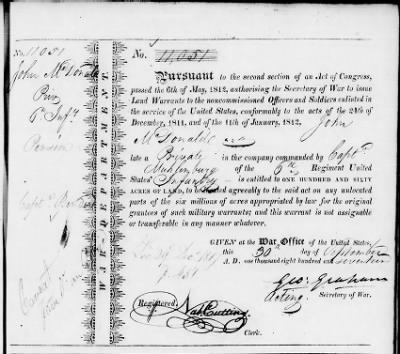 No. 11,051
John McDonald
6th Infy.
WAR-DEPARTMENT.
No. 11,051
Pursuant to the second section of an Act of Congress,
passed the 6th of May, 1812, authorising the Secretary of War to issue
Land Warrants to the noncommissioned Officers and Soldiers enlisted in
the service of the United States, conformably to the acts of the 24th of
December, 1811, and of the 11th of January, 1812, John
McDonald
late a Private in the company commanded by Captn
Muhlenburg of the 6th Regiment United
States' Infantry is ENTITLED to ONE HUNDRED AND SIXTY
ACRES OF LAND, to be located agreeably to the said act on any unlocated
parts of the six millions of acres appropriated by law for the original
grantees of such military warrants; and this warrant is not assignable
or transferable in any manner whatever.
GIVEN at the War Office of the United States,
this 30th day of September
A. D. one thousand eight hundred and seventeen
Geo: Graham
Acting Secretary of War.
Registered, Nat Cutting
Clerk.